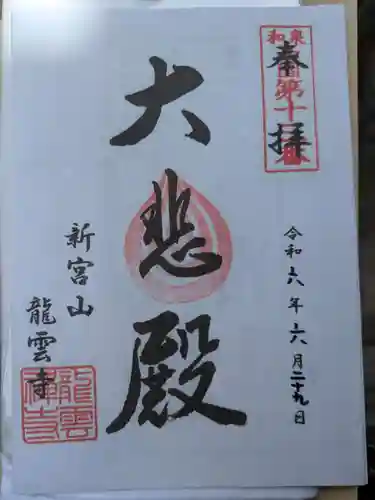 奉拝
和泉
第十
令和六年六月二十九日
大悲殿
新宮山
龍雲寺
龍雲